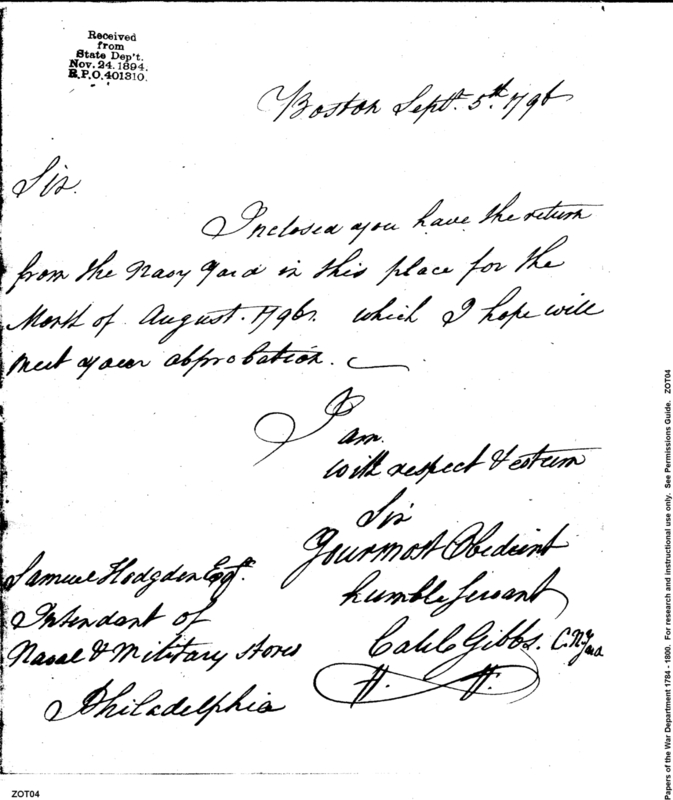 Received
from
State Dep't.
Nov. 24. 1894.
R.P.O. 401310.
Boston Sept. 5th. 1796
Sir.
Inclosed you have the return
from the Navy Yard in this place for the
Month of August. 1796. which I hope will
meet your approbation.
I
am.
with respect & esteem
Sir
Your most Obedient
humble Servant
Caleb Gibbs. C.N.Yard
Samuel Hodgden Esqr.
Intendant of
Naval & Military stores
Philadelphia
Papers of the War Department 1784 - 1800. For research and instructional use only. See Permissions Guide. ZOT04
ZOT04